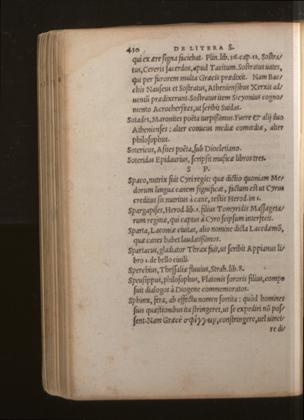 410 DE LITERA S.
qui ex ære signa faciebat. Plin. lib. 34. cap. 12. Sostra-
tus, Cereris sacerdos, apud Tacitum. Sostratus uates,
qui per furorem multa Græcis prædixit. Nam Bac-
chis Nauseus et Sostratus, Atheniensibus Xerxis ad-
uentũ prædixerunt. Sostratus item Sicyonius cogno-
mento Acrochersites, ut scribit Suidas.
Sotades, Maronites poëta turpissimus. Fuere & alij duo
Athenienses: alter comicus mediæ comœdiæ, alter
philosophus.
Sotericus, Asites poëta, sub Diocletiano.
Soteridas Epidaurius, scripsit musicæ libros tres.
S P.
Spaco, nutrix fuit Cyri regis: quæ dictio quoniam Me-
dorum lingua canem significat, fictum est ut Cyrus
creditus sit nutritus à cane, testis Herod. in 1.
Spargapises, Herod. lib. 1. filius Tomyridis Massagetæ
rum reginæ, qui captus à Cyro seipsum interfecit.
Sparta, Laconiæ ciuitas, alio nomine dicta Lacedæmõ,
quæ canes habet laudatissimos.
Spartacus, gladiator Thrax fuit, ut scribit Appianus li-
bro 1. de bello ciuili.
Sperchius, Thessaliæ fluuius, Strab. lib. 8.
Speusippus, philosophus, Platonis sororis filius, compo
suit dialogos à Diogene commemoratos.
Sphinx, fera, ab effectu nomen sortita: quòd homines
suis quæstionibus ita stringeret, ut se expedire nõ pos
sent. Nam Græcè σφίγγειν, constringere, uel uincire
re di